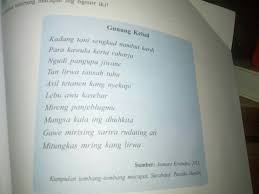 tembang macapat ing ngisor iki!
Gunung Kelud
Kadang tani sengkud nambut kardi
Para kawula kerta raharja
Ngudi pangupa jiwane
Tan lirwa tansah tuhu
Asil tetanen kang nyekapi
Lebu awu kasebar
Mireng panjeblugmu
Mangsa kala ing dhuhkita
Gawe mirising sarira rudating ati
Mitungkas mring kang lirwa
Sumber:
Kumpulan tembang-tembang macapat,